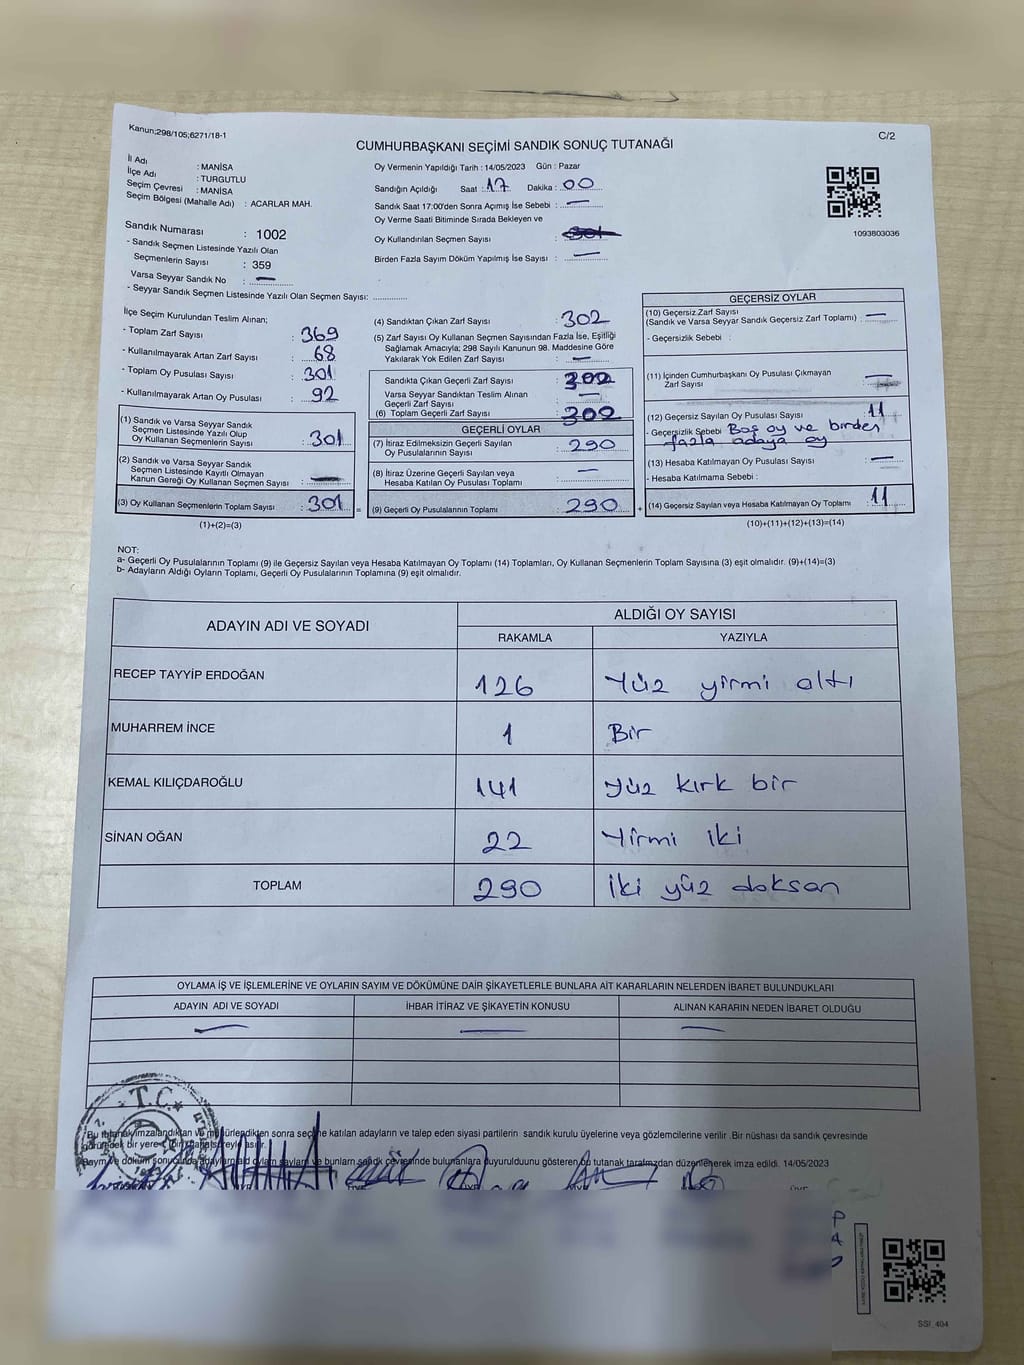 Kanun;298/105;6271/18-1
C/2
CUMHURBAŞKANI SEÇİMİ SANDIK SONUÇ TUTANAĞI
İl Adı : MANİSA
İlçe Adı : TURGUTLU
Seçim Çevresi : MANİSA
Seçim Bölgesi (Mahalle Adı) : ACARLAR MAH.
Sandık Numarası : 1002
- Sandık Seçmen Listesinde Yazılı Olan
Seçmenlerin Sayısı : 359
Varsa Seyyar Sandık No : —
- Seyyar Sandık Seçmen Listesinde Yazılı Olan Seçmen Sayısı: ............
Oy Vermenin Yapıldığı Tarih : 14/05/2023 Gün : Pazar
Sandığın Açıldığı Saat : 17 Dakika : 00
Sandık Saat 17:00'den Sonra Açımış İse Sebebi : —
Oy Verme Saati Bitiminde Sırada Bekleyen ve
Oy Kullandırılan Seçmen Sayısı :
Birden Fazla Sayım Döküm Yapılmış İse Sayısı : —
1093803036
İlçe Seçim Kurulundan Teslim Alınan;
- Toplam Zarf Sayısı : 369
- Kullanılmayarak Artan Zarf Sayısı : 68
- Toplam Oy Pusulası Sayısı : 301
- Kullanılmayarak Artan Oy Pusulası : 92
(1) Sandık ve Varsa Seyyar Sandık
Seçmen Listesinde Yazılı Olup
Oy Kullanan Seçmenlerin Sayısı : 301
(2) Sandık ve Varsa Seyyar Sandık
Seçmen Listesinde Kayıtlı Olmayan
Kanun Gereği Oy Kullanan Seçmen Sayısı : —
(3) Oy Kullanan Seçmenlerin Toplam Sayısı : 301 =
(1)+(2)=(3)
(4) Sandıktan Çıkan Zarf Sayısı : 302
(5) Zarf Sayısı Oy Kullanan Seçmen Sayısından Fazla İse, Eşitliği
Sağlamak Amacıyla; 298 Sayılı Kanunun 98. Maddesine Göre
Yakılarak Yok Edilen Zarf Sayısı : —
Sandıkta Çıkan Geçerli Zarf Sayısı : 302
Varsa Seyyar Sandıktan Teslim Alınan
Geçerli Zarf Sayısı : —
(6) Toplam Geçerli Zarf Sayısı : 302
GEÇERLİ OYLAR
(7) İtiraz Edilmeksizin Geçerli Sayılan
Oy Pusulalarının Sayısı : 290
(8) İtiraz Üzerine Geçerli Sayılan veya
Hesaba Katılan Oy Pusulası Toplamı : —
(9) Geçerli Oy Pusulalarının Toplamı : 290 +
GEÇERSİZ OYLAR
(10) Geçersiz Zarf Sayısı
(Sandık ve Varsa Seyyar Sandık Geçersiz Zarf Toplamı) : —
- Geçersizlik Sebebi :
(11) İçinden Cumhurbaşkanı Oy Pusulası Çıkmayan
Zarf Sayısı : —
(12) Geçersiz Sayılan Oy Pusulası Sayısı : 11
- Geçersizlik Sebebi Boş oy ve birden
fazla adaya oy
(13) Hesaba Katılmayan Oy Pusulası Sayısı : —
- Hesaba Katılmama Sebebi :
(14) Geçersiz Sayılan veya Hesaba Katılmayan Oy Toplamı : 11
(10)+(11)+(12)+(13)=(14)
NOT:
a- Geçerli Oy Pusulalarının Toplamı (9) ile Geçersiz Sayılan veya Hesaba Katılmayan Oy Toplamı (14) Toplamları, Oy Kullanan Seçmenlerin Toplam Sayısına (3) eşit olmalıdır. (9)+(14)=(3)
b- Adayların Aldığı Oyların Toplamı, Geçerli Oy Pusulalarının Toplamına (9) eşit olmalıdır.
ADAYIN ADI VE SOYADI
ALDIĞI OY SAYISI
RAKAMLA YAZIYLA
RECEP TAYYİP ERDOĞAN 126 Yüz yirmi altı
MUHARREM İNCE 1 Bir
KEMAL KILIÇDAROĞLU 141 Yüz kırk bir
SİNAN OĞAN 22 Yirmi iki
TOPLAM 290 İki yüz doksan
OYLAMA İŞ VE İŞLEMLERİNE VE OYLARIN SAYIM VE DÖKÜMÜNE DAİR ŞİKAYETLERLE BUNLARA AİT KARARLARIN NELERDEN İBARET BULUNDUKLARI
ADAYIN ADI VE SOYADI İHBAR İTİRAZ VE ŞİKAYETİN KONUSU ALINAN KARARIN NEDEN İBARET OLDUĞU
— — —
T.C.
Bu tutanak imzalandıktan ve mühürlendikten sonra seçime katılan adayların ve talep eden siyasi partilerin sandık kurulu üyelerine veya gözlemcilerine verilir .Bir nüshası da sandık çevresinde
14/05/2023
SSI_404